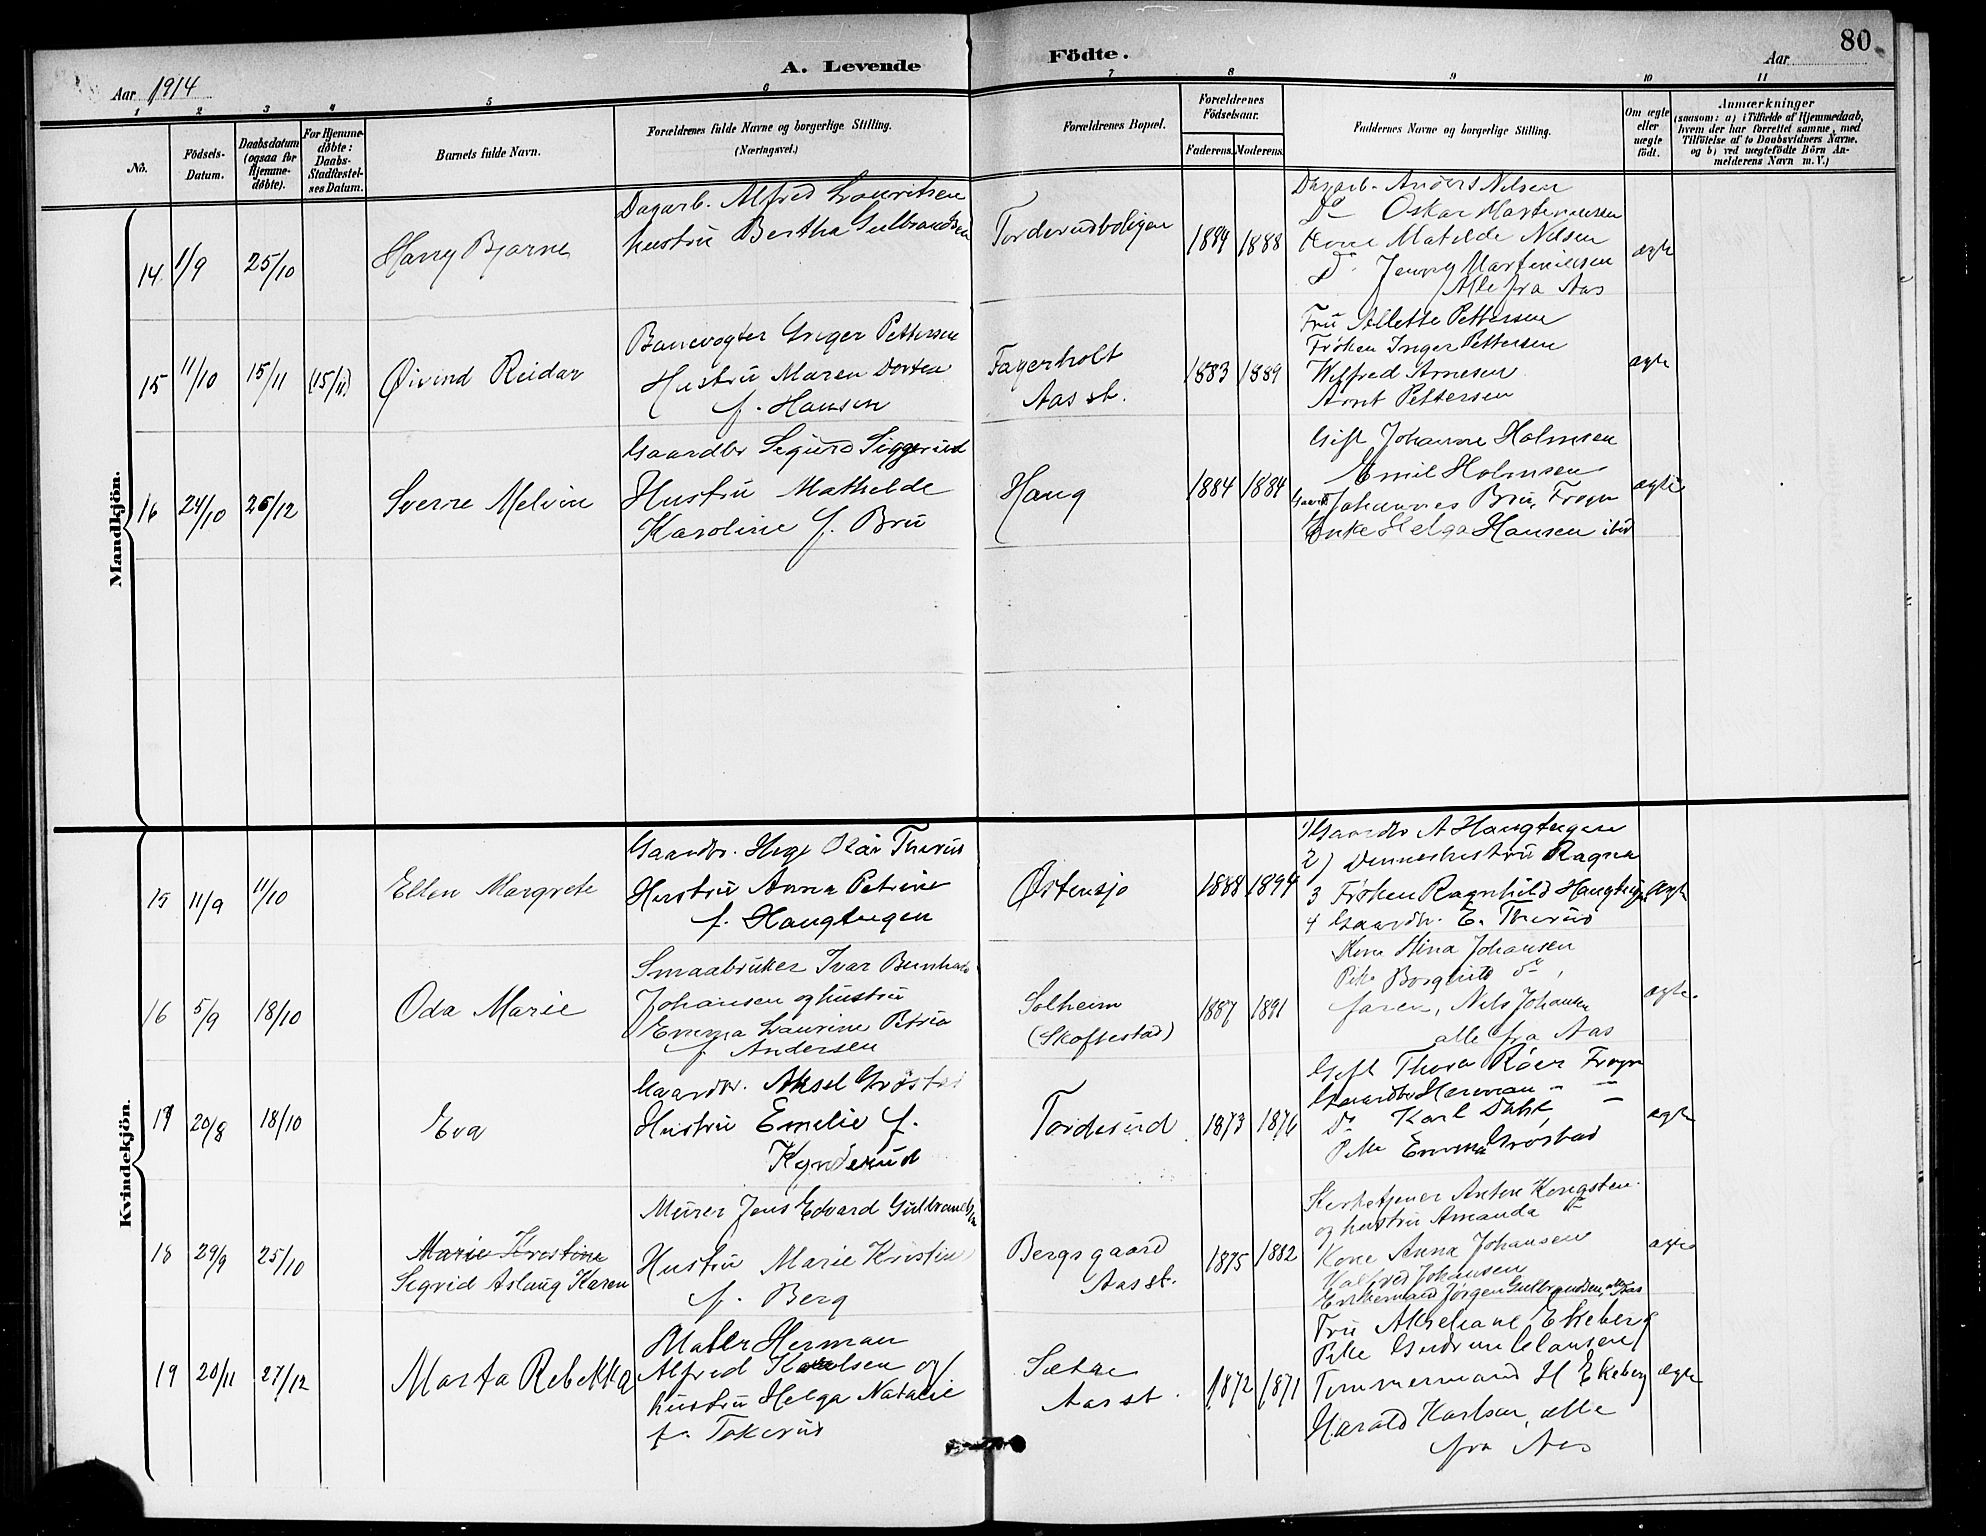 80
A. Levende Födte.
Aar 1914
Aar
1 2 3 4 5 6 7 8 9 10 11
No.
Födsels-Datum.
Daabsdatum (ogsaa for Hjemme-døbte).
For Hjemme-døbte: Daabs-Stadfæstel-ses Datum.
Barnets fulde Navn.
Forældrenes fulde Navne og borgerlige Stilling.
(Næringsvei.)
Forældrenes Bopæl.
Forældrenes Födselsaar.
Faderens. Moderens.
Faddernes Navne og borgerlige Stilling.
Om ægte eller uægte født.
Anmærkninger
(saasom: a) i Tilfælde af Hjemmedaab,
hvem der har forrettet samme, med
Tilföielse af to Daabsvidners Navne,
og b) ved uægtefödte Börn An-
melderens Navn m. V.)
Mandkjön.
14 1/9 25/10
Harry Bjarne
Dagarb. Alfred Lauritsen
hustru Bertha Gulbrandsen
Torderudboligen
1889 1888
Dagarb. Anders Nilsen
Do Oskar Martiniusen
Kone Matilde Nilsen
Do Jenny Martiniusen
Alle fra Aas
ægte
15 11/10 15/11 (15/11)
Øivind Reidar
Banevogter Inger Pettersen
Hustru Maren Dortea
f. Hansen
Fagerholt
Aas st.
1883 1889
Fru Allette Pettersen
Frøken Inger Pettersen
Wilfred Arnesen
Arnt Pettersen
ægte
16 24/10 26/12
Sverre Melvin
Gaardbr Sigurd Siggerud
Hustru Mathilde
Karoline f. Bru
Haug
1884 1884
Gift Johanne Holmsen
Emil Holmsen
Gaardb Johannes Bru, Frogn
Enke Helga Hansen ibid
ægte
Kvindekjön.
15 11/9 11/10
Ellen Margrete
Gaardbr. Hege Olav Therud
Hustru Anna Petrine
f. Haugtegen
Østensjo
1888 1894
1) Gaardbr A Haugtegen
2) Denneshustru Ragna
3 Frøken Ragnhild Haugtegen
4 Gaardbr. E. Therud
Ægte
16 5/9 18/10
Oda Marie
Smaabruker Ivar Bernhard
Johansen og hustru
Emma Laurine Petrea
f. Andersen
Solheim
(Skoftestad)
1887 1891
Kone Stina Johansen
Pike Borghild do,
faren, Nils Johansen
alle fra Aas
ægte.
17 20/8 18/10
Eva
Gaardbr. Aksel Grøstad
Hustru Emelie f.
Kynderud
Torderud
1873 1876
Gift Thora Røer Frogn
Gaardbr Herman - -
Do Karl Dahl, -
Pike Emma Grøstad
ægte
18 29/9 25/10
Marie Kristine
Sigrid Aslaug Karen
Murer Jens Edvard Gulbrandsen
Hustru Marie Kristine
f. Berg
Bergsgaard
Aas st.
1875 1882
Kirketjener Anton Kongsten
og hustru Amanda do
Kone Anna Johansen
Halfred Johansen
Enkemand Jørgen Gulbrandsen, alle Aas
ægte
19 20/11 27/12
Marta Rebekka
Maler Herman
Alfred Karlsen og
hustru Helga Natalie
f. Tokerud
Sætre
Aas st.
1872 1871
Fru Akseliane Ekeberg
Pike Gudrun Clausen
Tømmermand H Ekeberg
Harald Karlsen, alle
fra Aas
Ægte